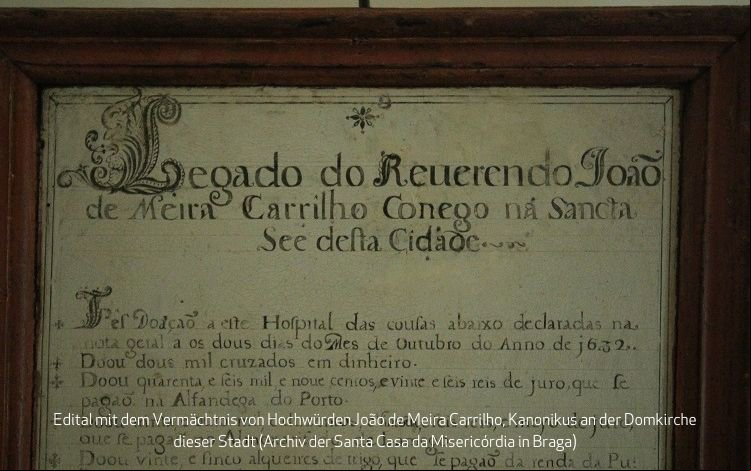 Legado do Reuerendo João
de Meira Carrilho Conego na Sancta
Seé desta Cidade
Fes Doação a este Hospital das cousas abaixo declaradas na
nota geral a os dous dias do Mes de Outubro do Anno de j632.
Doou dous mil cruzados em dinheiro.
Doou quarenta, e seis mil e noue centos, e vinte e seis reis de juro, que se
pagaõ na Alfandega do Porto.
Edital mit dem Vermächtnis von Hochwürden João de Meira Carrilho, Kanonikus an der Domkirche
que se paga
dieser Stadt (Archiv der Santa Casa da Misericórdia in Braga)
Doou vinte, e sinco alqueires de trigo, que se pagaõ da renda da Pu: